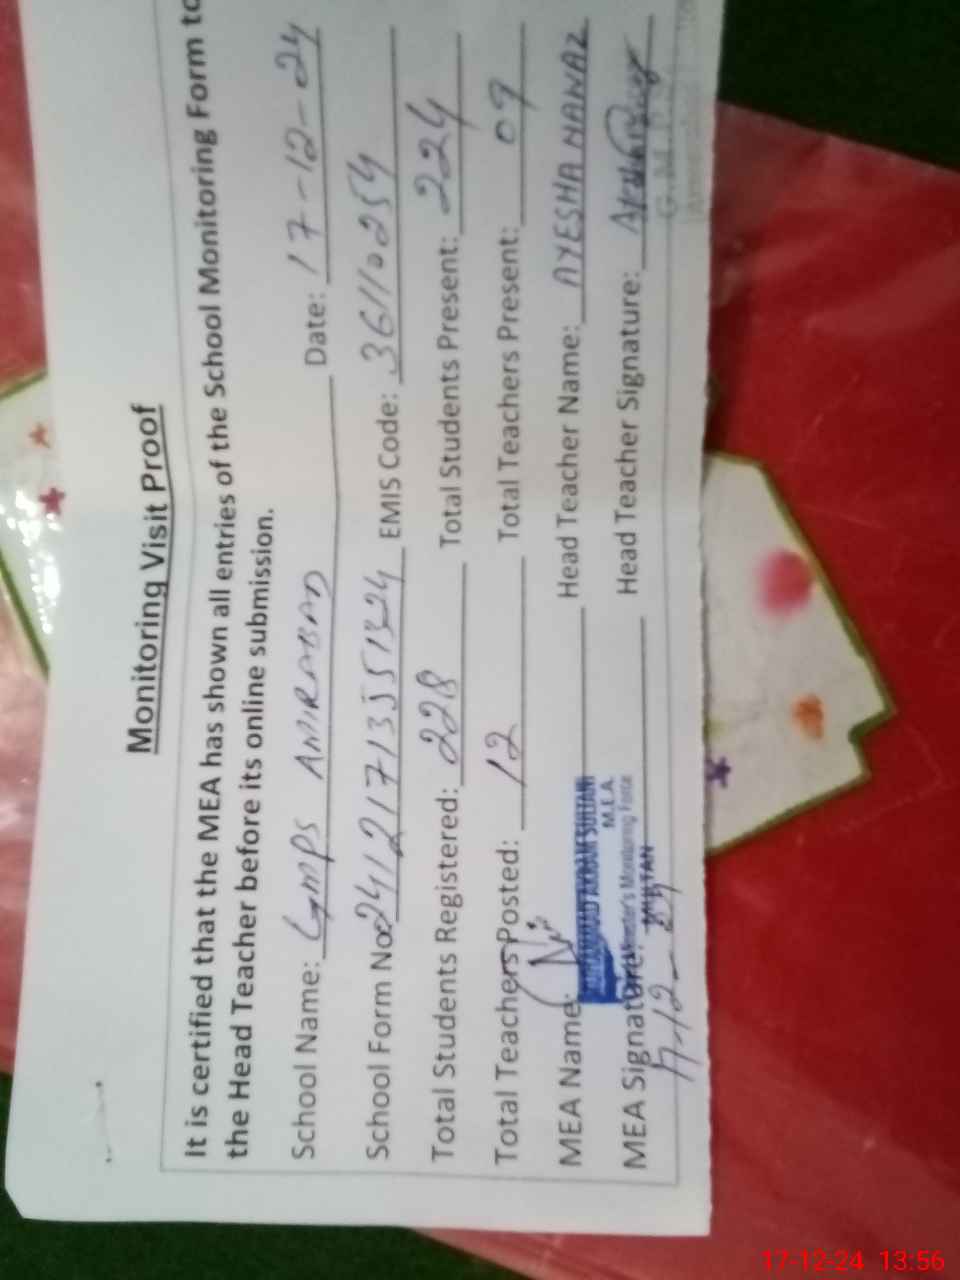 Monitoring Visit Proof
It is certified that the MEA has shown all entries of the School Monitoring Form to
the Head Teacher before its online submission.
School Name: GMPS AMIRABAD Date: 17-12-24
School Form No: 241217135551324 EMIS Code: 36110254
Total Students Registered: 228 Total Students Present: 224
Total Teachers Posted: 12 Total Teachers Present: 09
MEA Name: MUHAMMAD AKRAM SULTANI Head Teacher Name: AYESHA NANAZ
M.E.A.
Monitoring Force
MULTAN
MEA Signature: Head Teacher Signature:
17-12-24
G.M.P.S
17-12-24 13:56